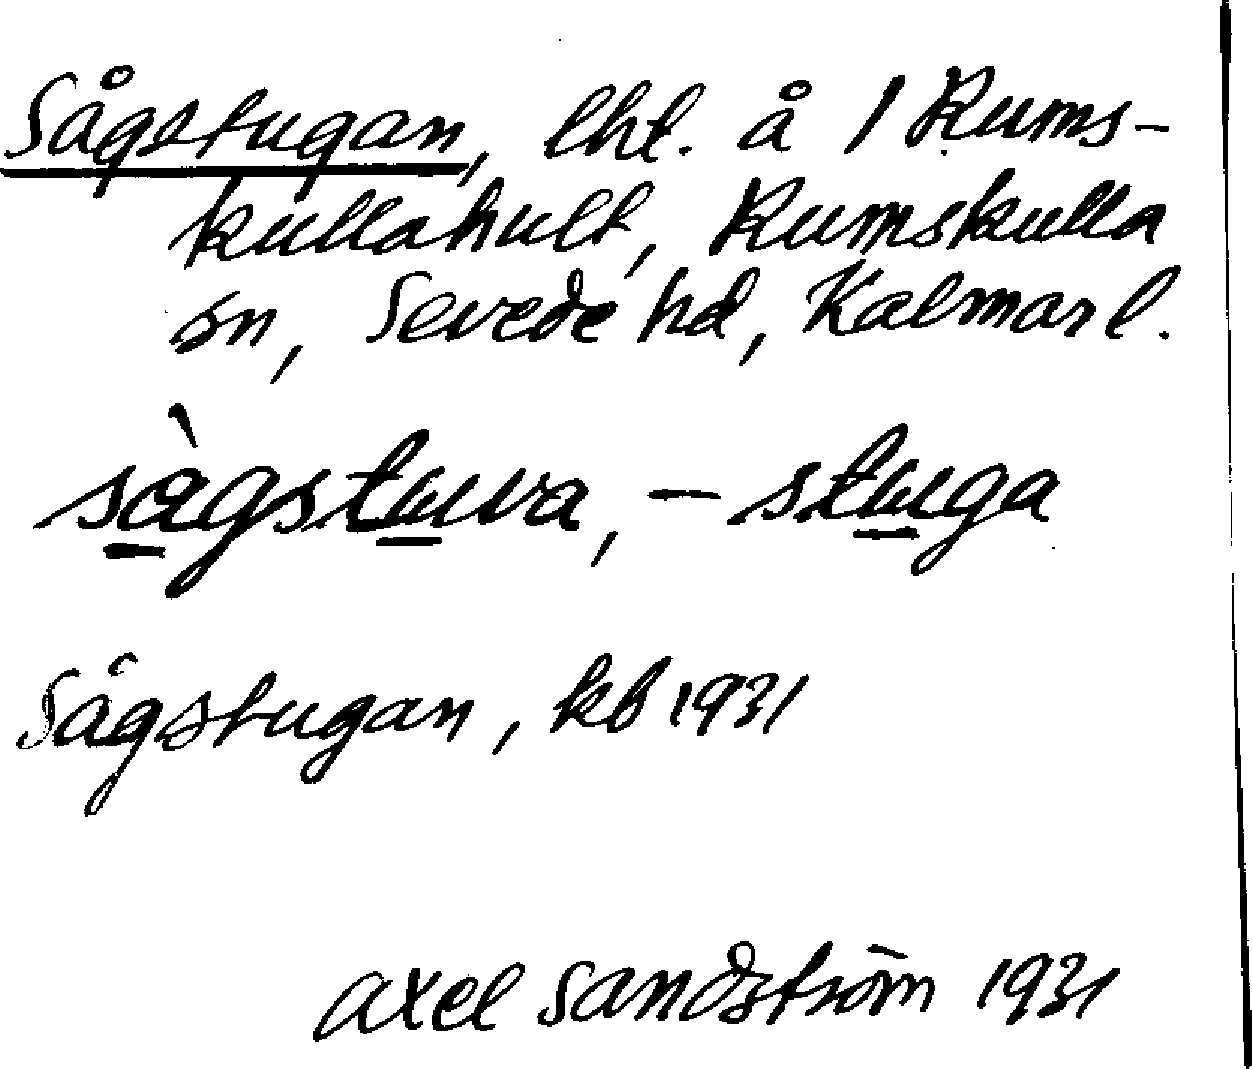 Sågstugan, lht. å 1 Rums-
kullahult, Rumskulla
sn, Sevede hd, Kalmar l.
sàgstuva, - stuga
Sågstugan, kb 1931
Axel Sandström 1931